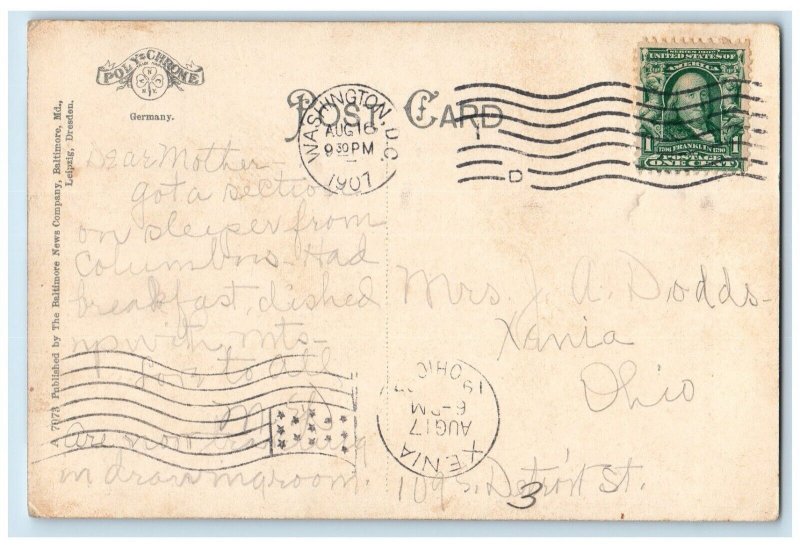 POLY-CHROME
Germany.
A 7073 Published by The Baltimore News Company, Baltimore, Md.,
Leipzig, Dresden.
POST CARD
WASHINGTON, D.C.
AUG 16
9 30 PM
1907
SERIES 1902
UNITED STATES OF
AMERICA
1 1706 FRANKLIN 1790 1
POSTAGE
ONE CENT
D
Dear Mother-
got a section
on sleeper from
Columbus- Had
breakfast, dished
up with, mts-
Love to All
Are now
in drawingroom.
Mrs. J. A. Dodds-
Xenia
Ohio
109 S. Detroit St.
3
XENIA
AUG 17
6-PM
19 07
OHIO